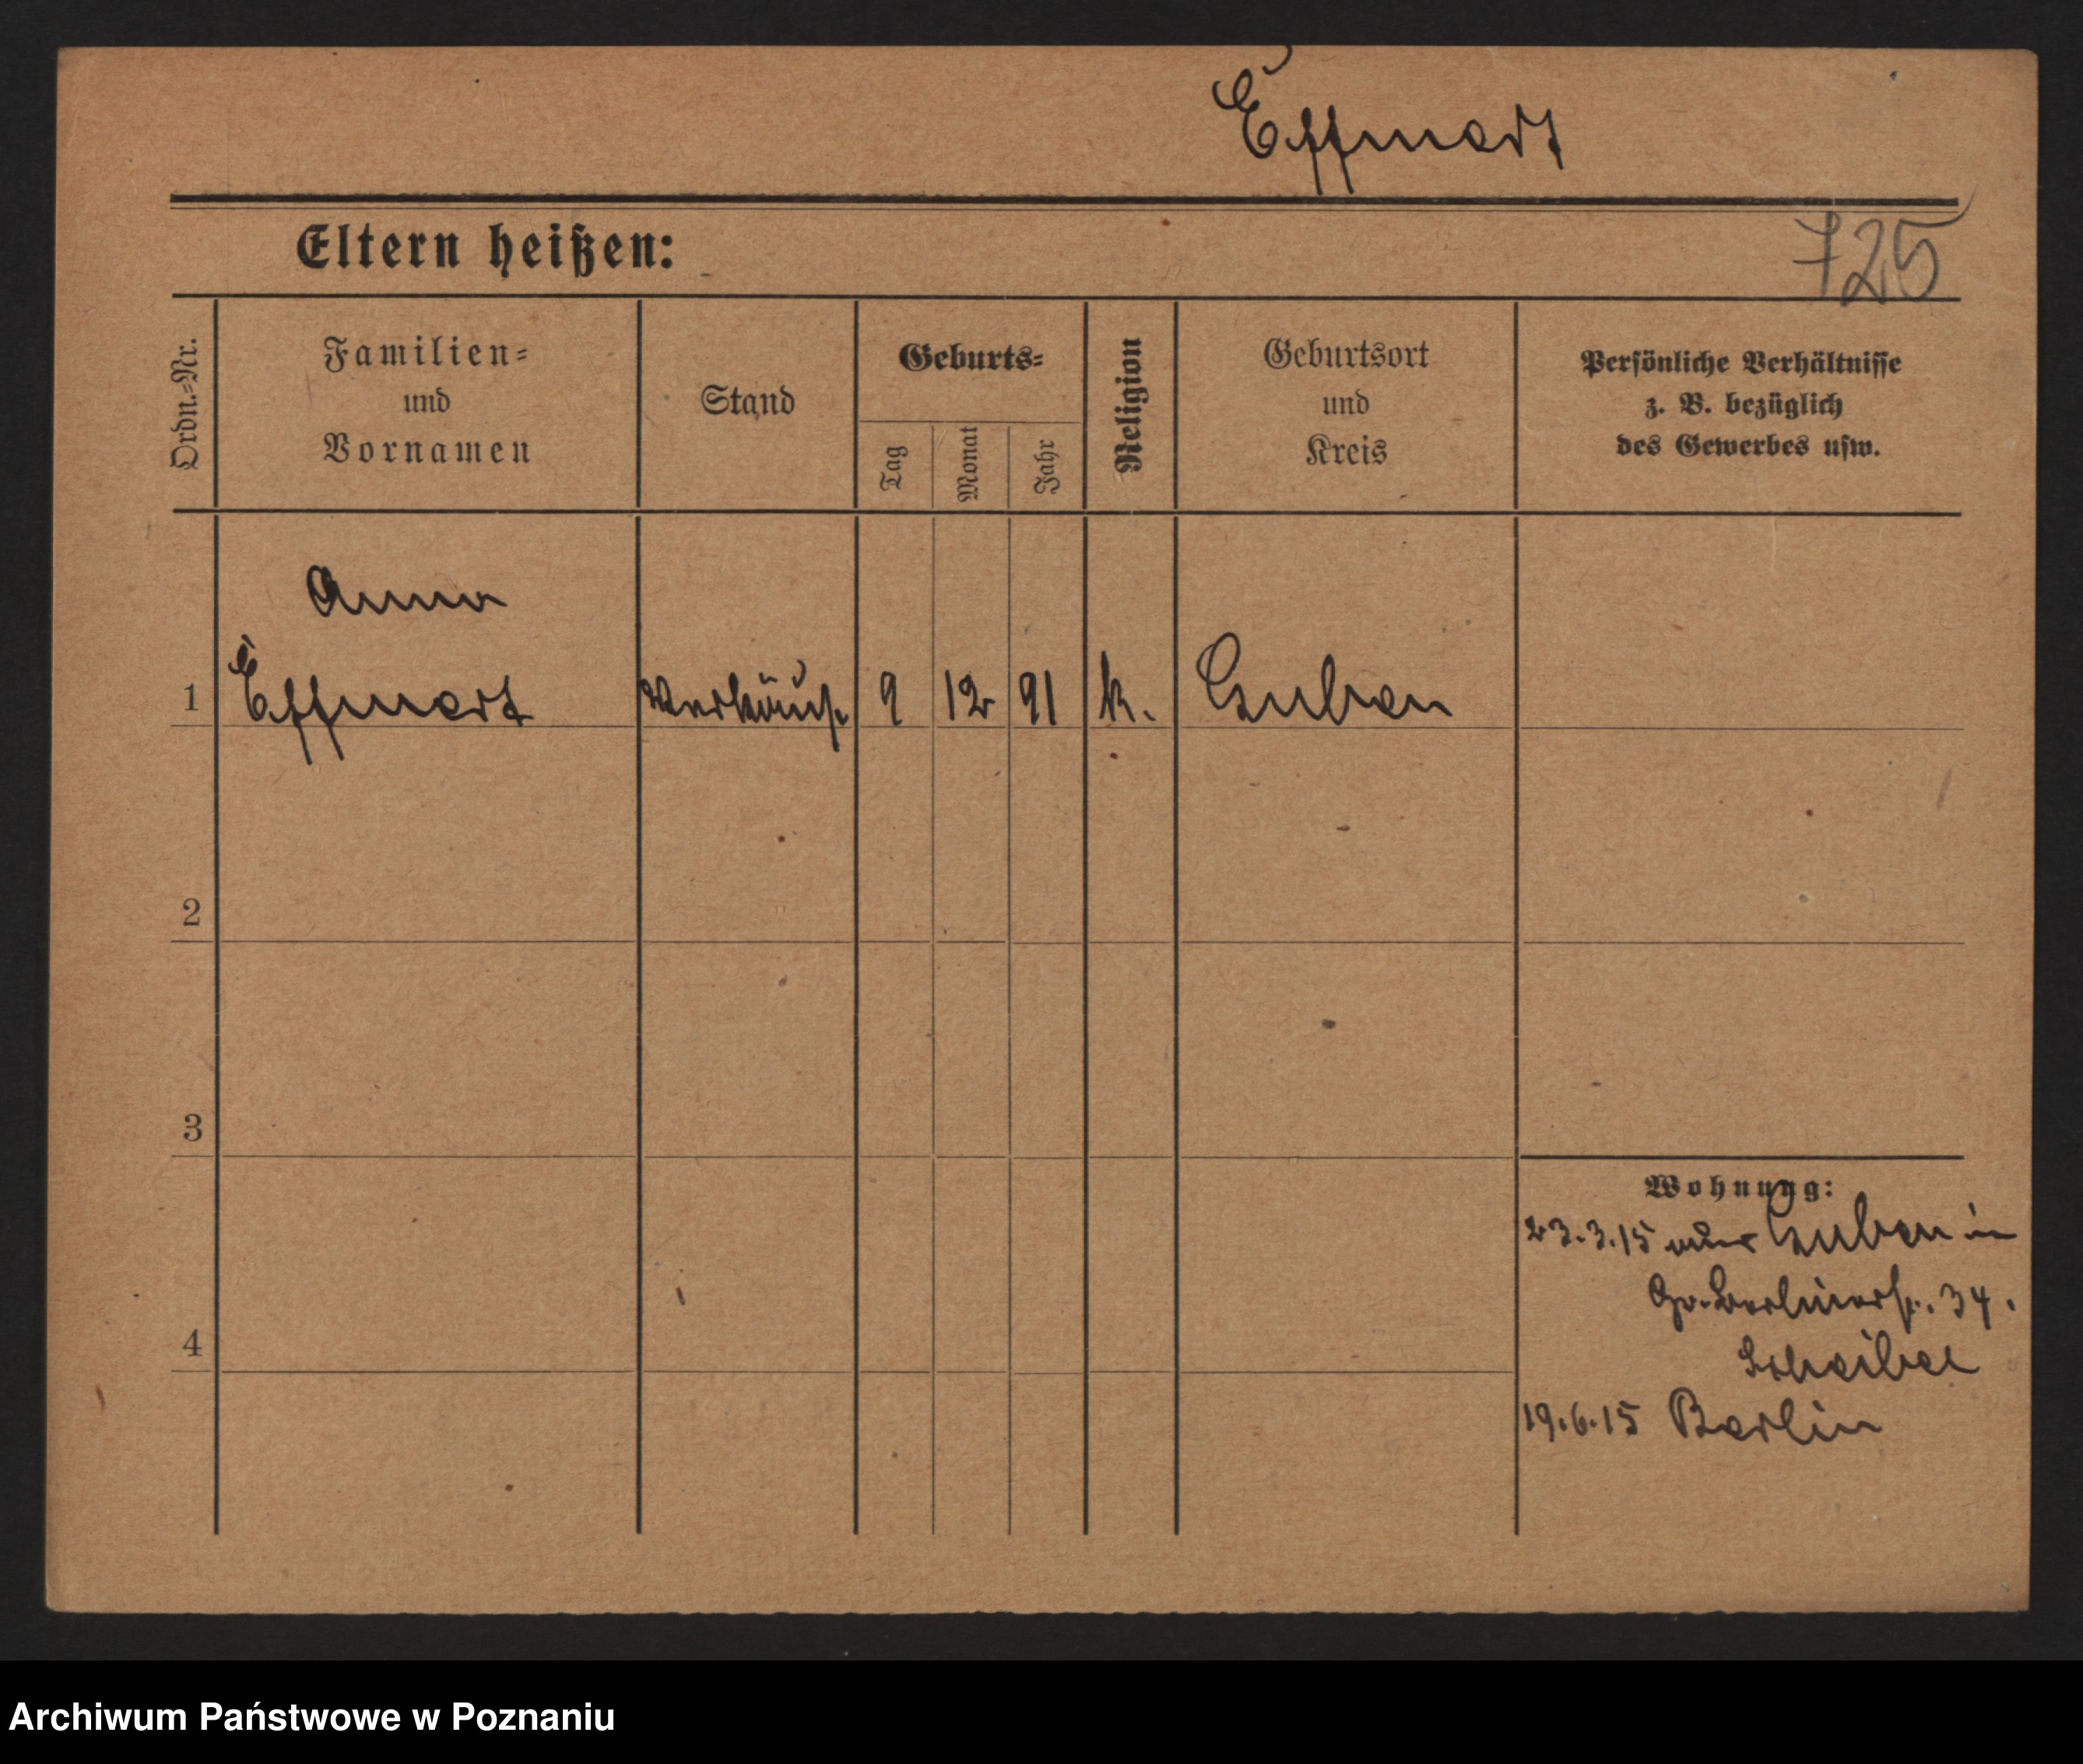 Effmert
Eltern heißen:
725
Ordn.-Nr.
Familien-
und
Vornamen
Stand
Geburts-
Tag
Monat
Jahr
Religion
Geburtsort
und
Kreis
Persönliche Verhältnisse
z. B. bezüglich
des Gewerbes usw.
Anna
1 Effmert Verkäuf. 9 12 91 k. Guben
2
3
4
Wohnung:
23.3.15 aus Guben in
Gr. Berlinerstr. 34.
Scheibel
19.6.15 Berlin
Archiwum Państwowe w Poznaniu